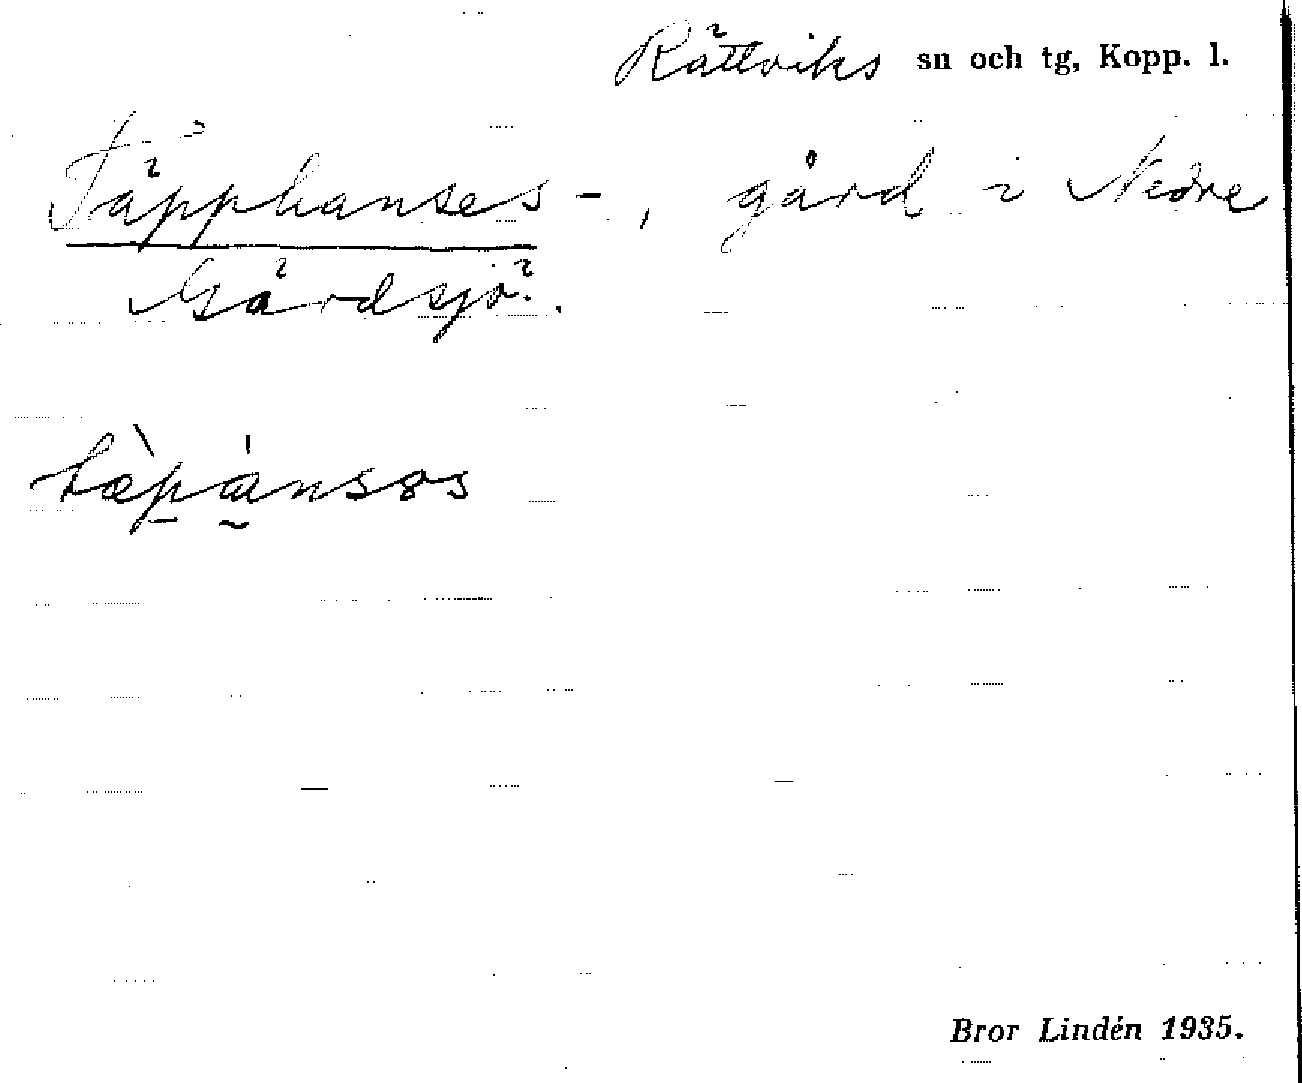 Rättviks sn och tg, Kopp. l.
Täpphanses-, gård i Nedre
Gärdsjö.
tæ̀pánsəs
Bror Lindén 1935.